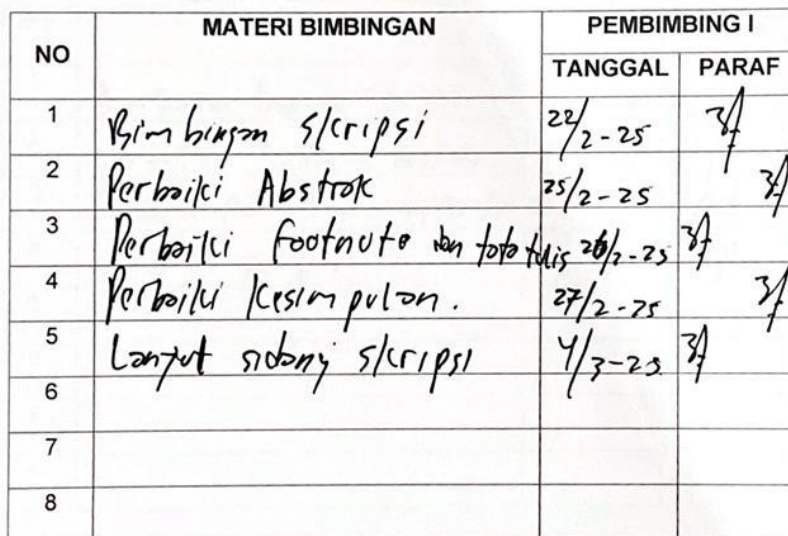 NO MATERI BIMBINGAN PEMBIMBING I
TANGGAL PARAF
1 Bimbingan Skripsi 22/2-25
2 Perbaiki Abstrak 25/2-25
3 Perbaiki footnote dan tata tulis 26/2-25
4 Perbaiki Kesimpulan. 27/2-25
5 Lanjut sidang skripsi 4/3-25
6
7
8